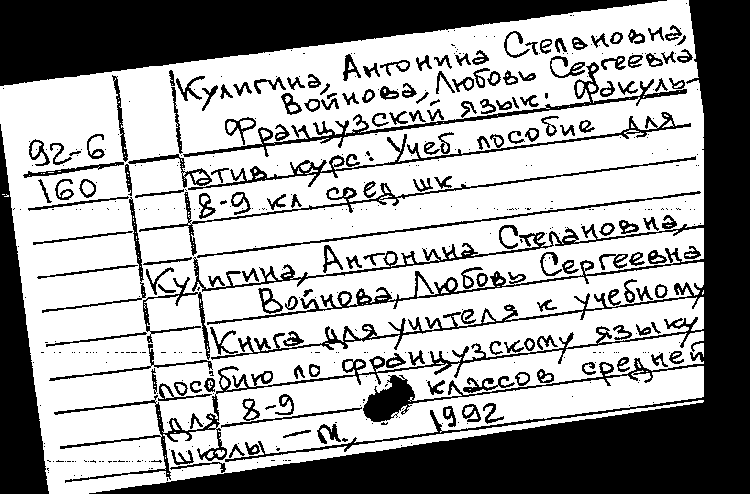 Кулигина, Антонина Степановна,
Войнова, Любовь Сергеевна
Французский язык: Факуль-
92-6
160
татив. курс: Учеб. пособие для
8-9 кл. сред. шк.
Кулигина, Антонина Степановна,
Войнова, Любовь Сергеевна
Книга для учителя к учебному
пособию по французскому языку
для 8-9 классов средней
школы. — М., 1992